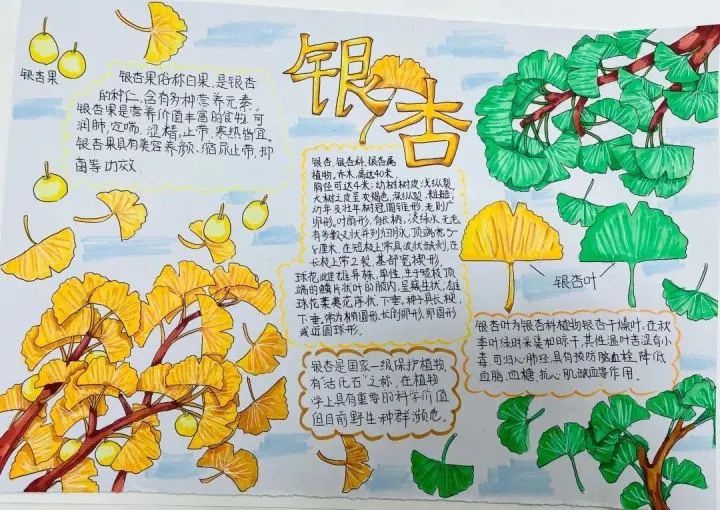 银杏
银杏果
银杏果俗称白果,是银杏
的种仁,含有多种营养元素。
银杏果是营养价值丰富的食物,可
润肺,定喘,涩精,止带,寒热皆宜。
银杏果具有美容养颜、缩尿止带,抑
菌等功效.
银杏,银杏科,银杏属
植物,乔木,高达40米
胸径可达4米;幼树树皮浅纵裂,
大树之皮呈灰褐色,深纵裂,粗糙;
幼年及壮年树冠圆锥形,老则广
卵形,叶扇形,有长柄,淡绿水,无毛
有多数叉状并列细脉,顶端宽5-
8厘米,在短枝上常具波状缺刻,在
长枝上常2裂,基部宽楔形,
球花雌雄异株,单性,生于短枝顶
端的鳞片状叶的腋内,呈簇生状;雄
球花葇荑花序状,下垂,种子具长梗,
下垂,常为椭圆形,长倒卵形,卵圆形
或近圆球形.
银杏是国家一级保护植物,
有"活化石"之称,在植物
学上具有重要的科学价值
但目前野生种群濒危.
银杏叶
银杏叶为银杏科植物银杏干燥叶,在秋
季叶绿时采集加晾干,其性温叶苦涩有小
毒,可归心肺经,具有预防脑血栓,降低
血脂,血糖,抗心肌缺血等作用.